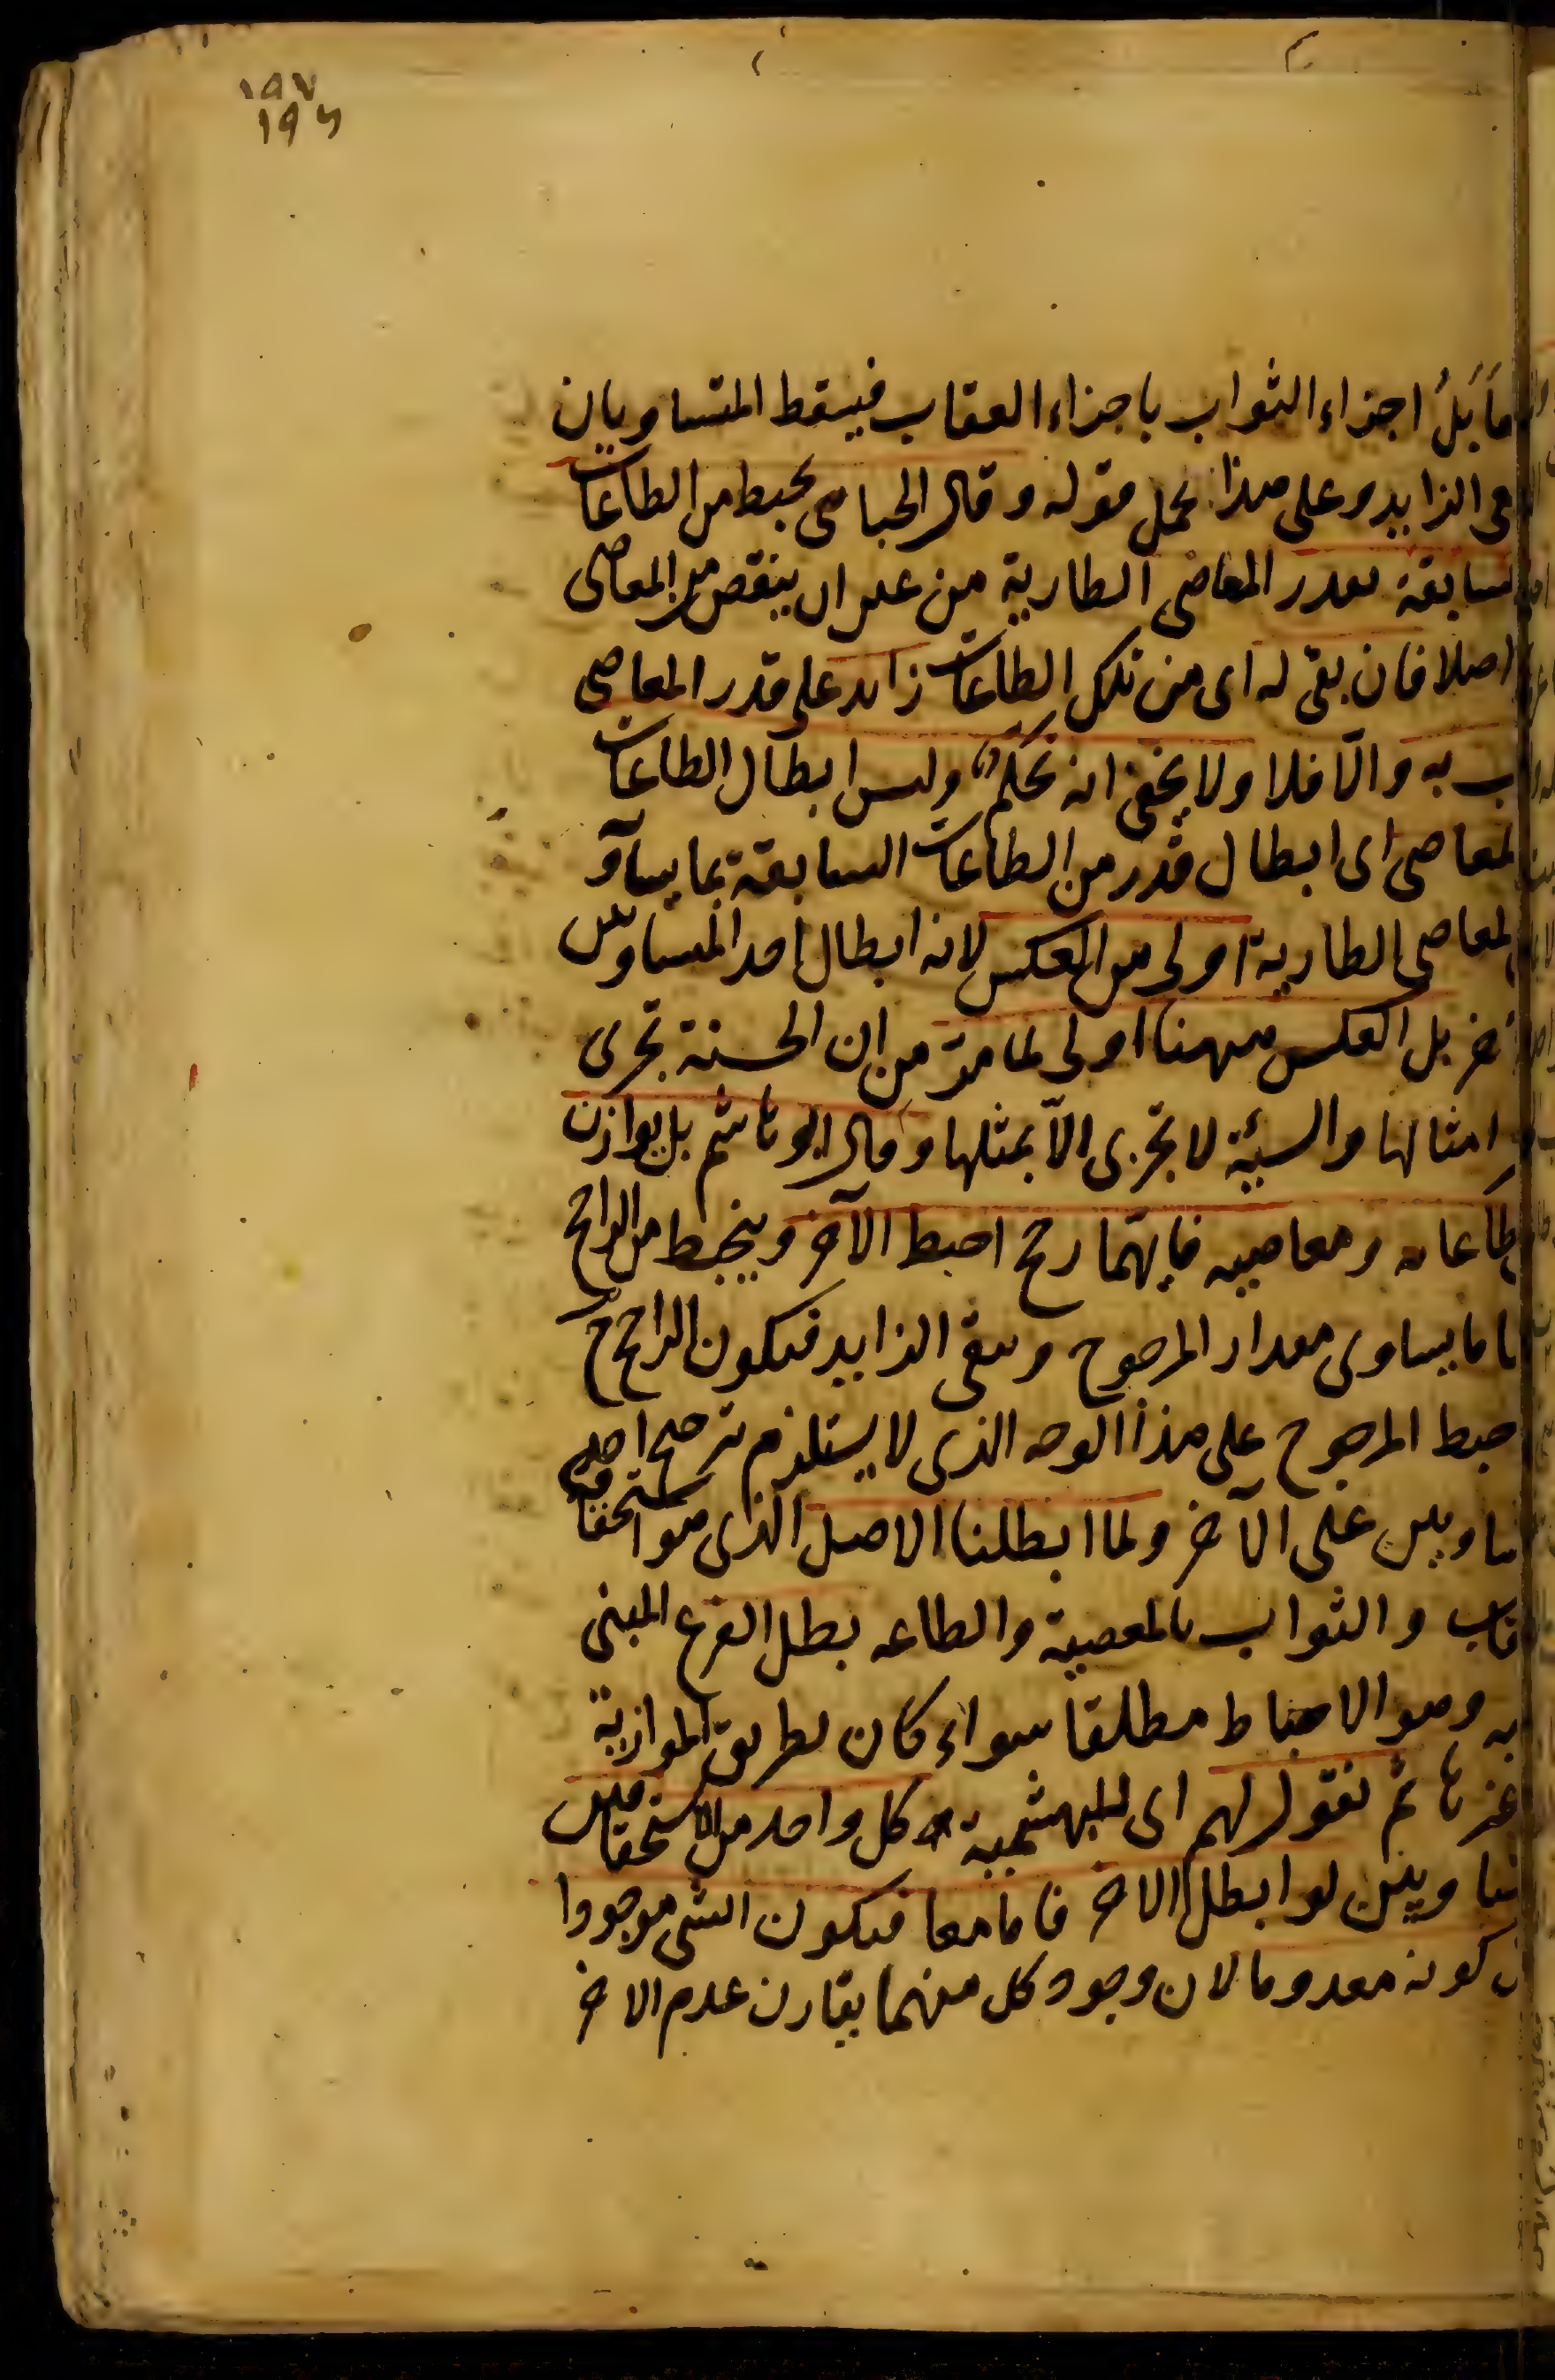 ١٩٧
١٩٦
مابل اجزاء الثواب باجزاء العقاب فيسقط المتساويان
الزايد وعلى هذا يحمل قوله وقال الجبائي يحبط من الطاعات
سابقة بقدر المعاصي الطارية من غير ان ينقص من المعاصي
اصلا فان بقى له اى من تلك الطاعات زايد على قدر المعاصي
ب به والّا فلا ولا يخفى انه تحكم وليس ابطال الطاعات
لمعاصي اى ابطال قدر من الطاعات السابقة بما يساوى
لمعاصي الطارية اولى من العكس لانه ابطال احد المتساويين
خر بل العكس ههنا اولى لما مرّ من ان الحسنة تجزى
امثالها والسيئة لا تجزى الّا بمثلها وقال ابو هاشم بل يوازن
طاعاته ومعاصيه فايهما رجح احبط الآخر وينحبط من الراجح
ما يساوى مقدار المرجوح ويبقى الزايد فيكون الراجح
حبط المرجوح على هذا الوجه الذى لا يستلزم ترجيح احد
ساويين على الآخر ولما ابطلنا الاصل الذى هو استحقاق
قاب والثواب بالمعصية والطاعه بطل الفرع المبنى
يه وهو الاحباط مطلقا سواء كان بطريق الموازنة
غيرها ثم نقول لهم اى للبهشمية كل واحد من الاستحقاقين
ساويين لو ابطل الاخر فاما معا فيكون الشى موجودا
كونه معدوما لان وجود كل منهما يقارن عدم الاخر